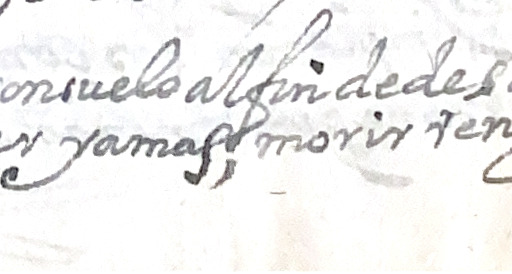 onsuelo al fin dedes
er yamas; morir ten